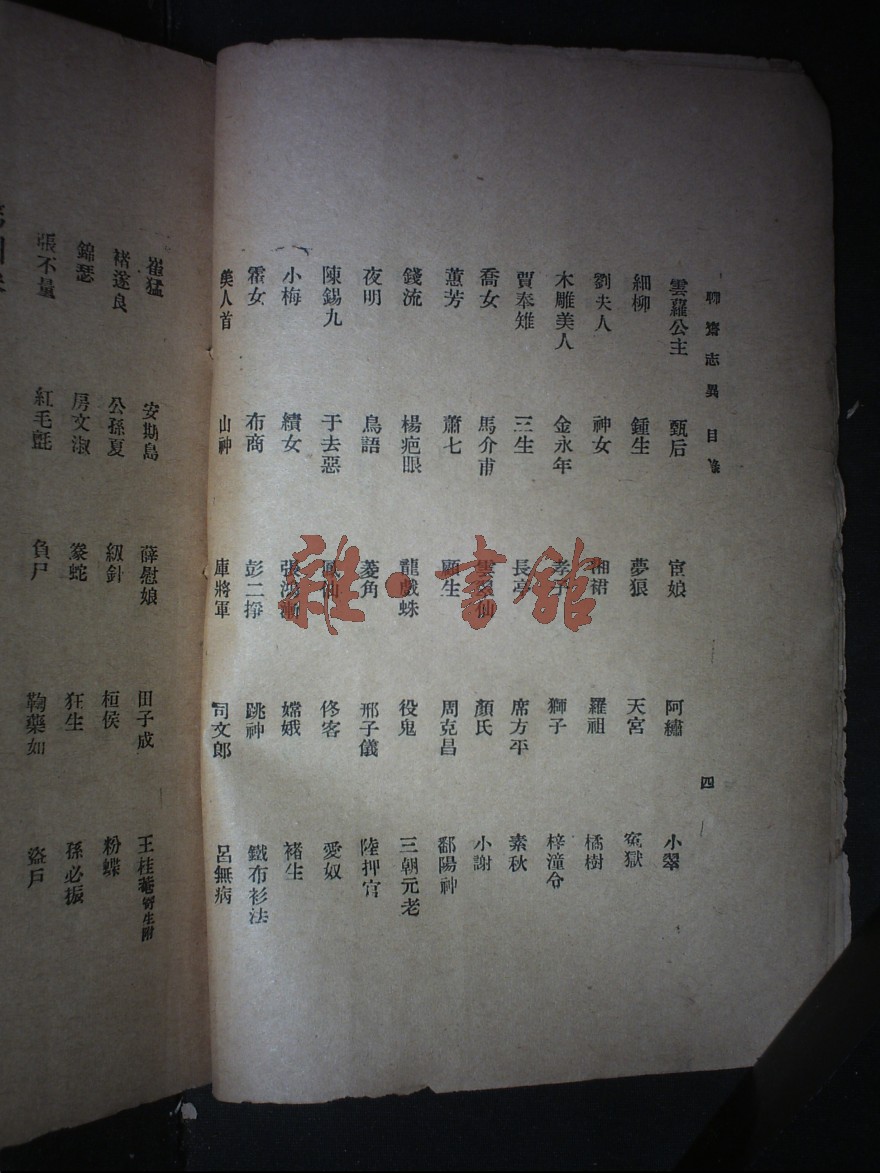 聊齋志異 目錄 四
雲羅公主 甄后 宦娘 阿繡 小翠
細柳 鍾生 夢狼 天宮 冤獄
劉夫人 神女 湘裙 羅祖 橘樹
木雕美人 金永年 孝子 獅子 梓潼令
賈奉雉 三生 長亭 席方平 素秋
喬女 馬介甫 雲翠仙 顏氏 小謝
蕙芳 蕭七 顧生 周克昌 鄱陽神
錢流 楊疤眼 龍戲蛛 役鬼 三朝元老
夜明 鳥語 菱角 邢子儀 陸押官
陳錫九 于去惡 鳳仙 佟客 愛奴
小梅 績女 張鴻漸 嫦娥 褚生
霍女 布商 彭二掙 跳神 鐵布衫法
美人首 山神 庫將軍 司文郎 呂無病
崔猛 安期島 薛慰娘 田子成 王桂菴寄生附
褚遂良 公孫夏 紉針 桓侯 粉蝶
錦瑟 房文淑 豢蛇 狂生 孫必振
張不量 紅毛氈 負尸 鞠藥如 盜戶
雜·書館